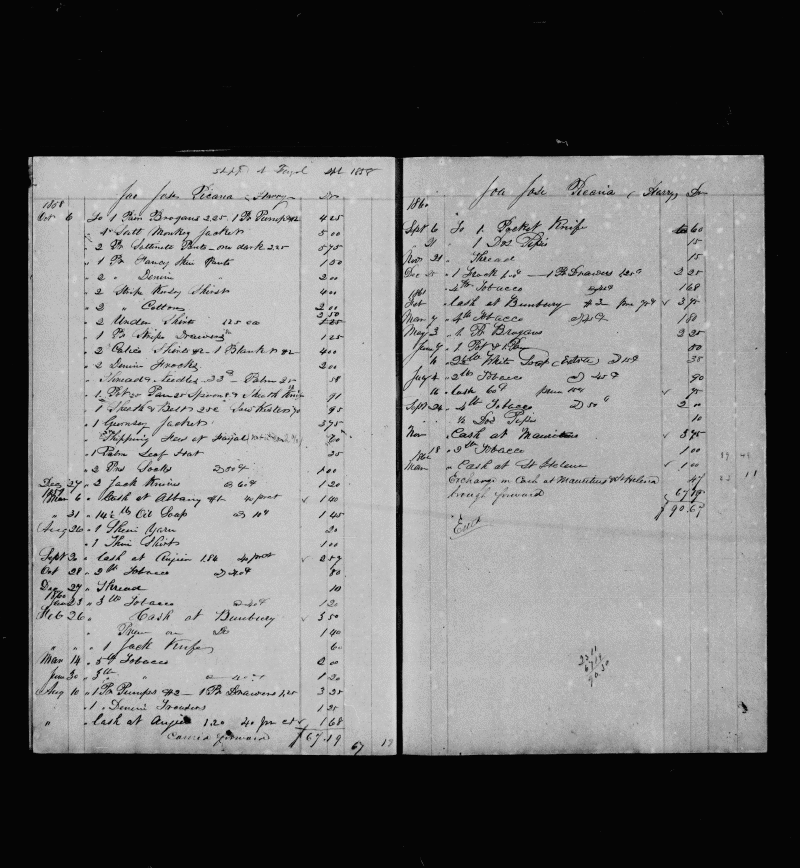 at Fayal 1858
Joa Jose Picania Harry Dr
1858
Oct 6 To 1 Pair Brogans 2.25 1 Pr Pumps #2 4 25
" 1 Salt Monkey Jacket 5 00
" 2 Pr Sattinett Pants - one dark 2.25 5 75
" 1 Pr Fancy Pants 1 50
" 2 " Denim " 2 00
" 2 Stripe Kersey Shirts 4 00
" 2 " Cotton 2 00
" 2 Under Shirts 125 ea 2 50
" 1 Pr Stripe Drawers 1 25
" 2 Calico Shirts #2 - 1 Blanket #2 4 00
" 2 Denim Frocks 2 00
" Thread & Needles 33c - Palm 25 58
" 1 Pot 20 Pan 25 Spoon & Sheath Knife 91
" 1 Sheath & Belt 25c 95
" 1 Guernsey Jacket 3 75
" Shipping Fees at Fayal 60
" 1 Palm Leaf Hat 25
" 2 Prs Socks @ 50c 1 00
Dec 27 " 2 Jack Knives @ 60c 1 20
1859
Mar 6 " Cash at Albany #1 40 prct 1 40
" 31 " 14½ lb Oil Soap @ 10c 1 45
Aug 26 " 1 Skein Yarn 20
" 1 Thin Shirt 1 00
Sept 30 " Cash at Angier 1.86 40 prct
Oct 28 " 2 lb Tobacco @ 40c 80
Dec 27 " Thread 10
1860
Jan 23 " 3 lb Tobacco @ 40c 1 20
Feb 26 " Cash at Bunbury 3 50
" Prem on Do 1 40
" " 1 Jack Knife 60
Mar 14 " 5 lb Tobacco 2 00
Jun 30 " 3 lb " @ 40c 1 20
Aug 10 " 1 Pr Pumps #2 - 1 Pr Drawers 1.25 3 25
" 1 " Denim Trousers 1 25
" Cash at Angier 1.20 40 pr ct 1 68
Carried forward 67.19
67 19
Joa Jose Picania Harry Dr
1860
Sept 6 To 1 Pocket Knife 60
" 21 " 1 Doz Pipes 15
Nov 21 " Thread 15
Dec " 1 Frock 1.00 - 1 Pr Drawers 1.25c 2 25
1861
" 4 lb Tobacco 1 68
Feb " Cash at Bunbury #3 prem 75c 3 75
Mar 7 " 4 lb Tobacco 1 80
May 3 " 1 Pr Brogans 2 25
June 7 " 1 Pot & Pan 50
" White Soap 35
July 4 " 2 lb Tobacco @ 45c 90
" 16 " Cash 60c prem 15c 75
Sept 24 " 4 lb Tobacco @ 50c 2 00
" ½ Doz Pipes 10
Nov " Cash at Mauritius 3 75
" 2 lb Tobacco 1 00
Mar " Cash at St Helena 1 00
Exchange on Cash at Mauritius & St Helena 47
brough forward 67.19
90.69
23 11
67 19
90.30